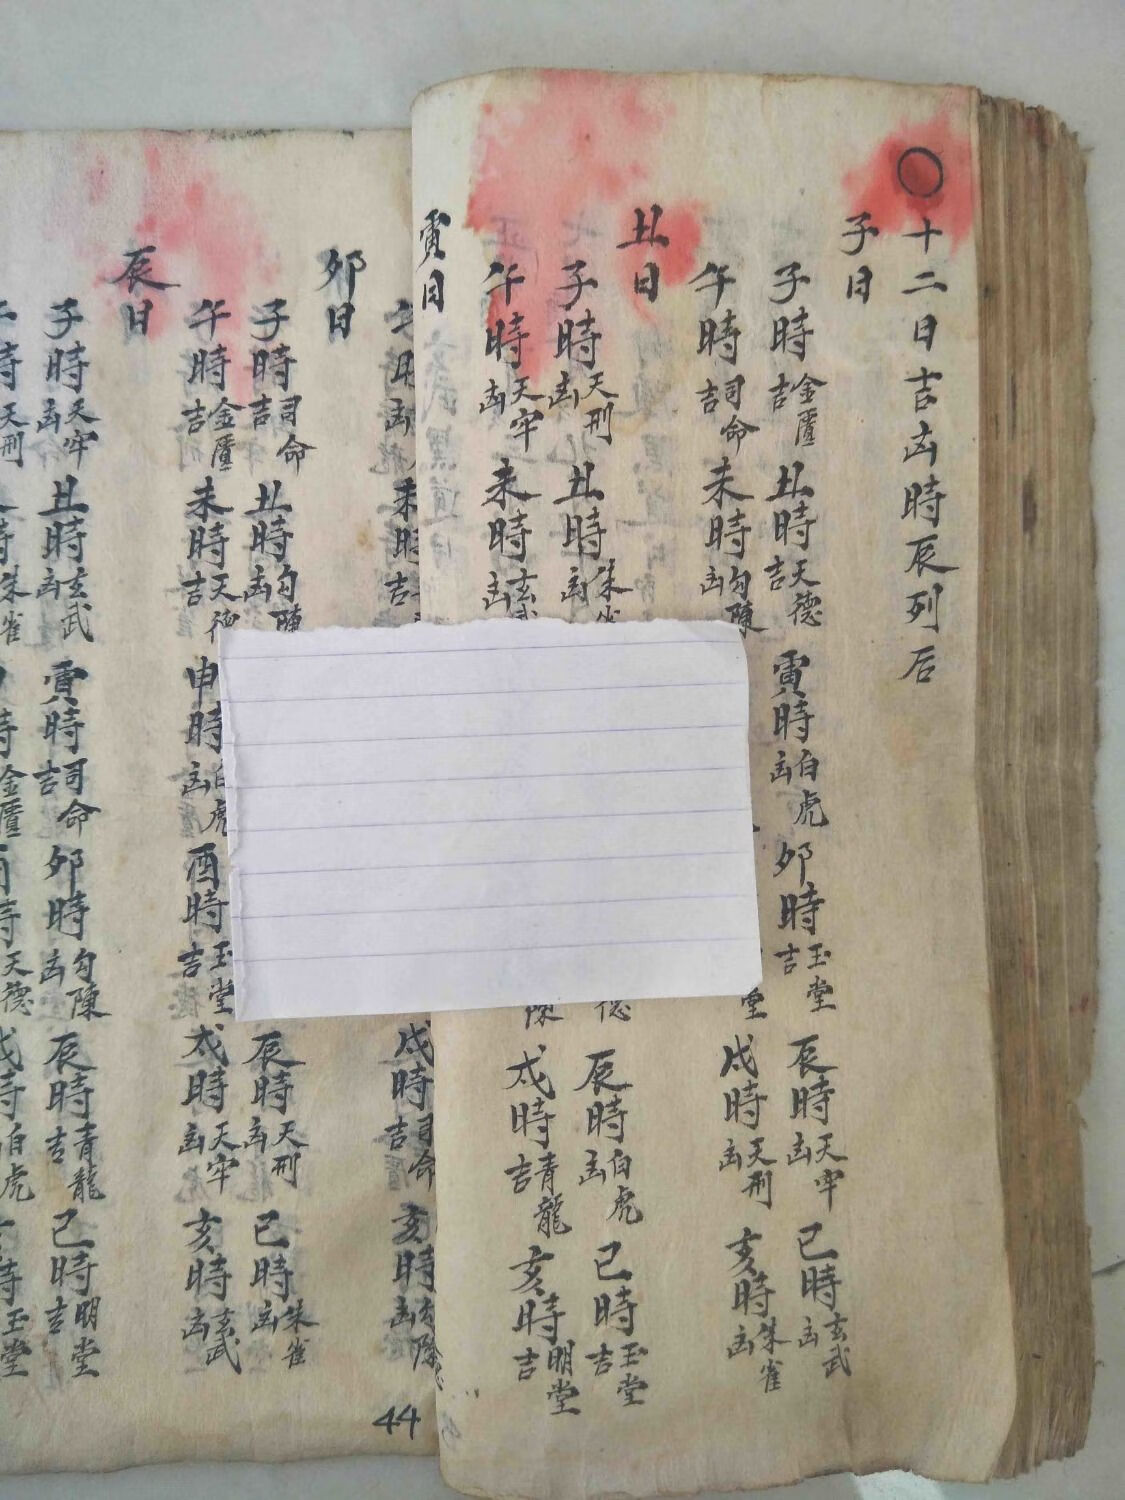 〇十二日吉凶時辰列后
子日
子時金匱吉 丑時天德吉 寅時白虎凶 卯時玉堂吉 辰時天牢凶 巳時玄武凶
午時司命吉 未時勾陳凶 堂 戌時天刑凶 亥時朱雀凶
丑日
子時天刑凶 丑時朱雀凶 德 辰時白虎凶 巳時玉堂吉
午時天牢凶 未時玄武凶 陳 戌時青龍吉 亥時明堂吉
寅日
午時凶 未時吉 戌時司命吉 亥時勾陳凶
卯日
子時司命吉 丑時勾陳凶 辰時天刑凶 巳時朱雀凶
午時金匱吉 未時天德吉 申時白虎凶 酉時玉堂吉 戌時天牢凶 亥時玄武凶
辰日
子時天牢凶 丑時玄武凶 寅時司命吉 卯時勾陳凶 辰時青龍吉 巳時明堂吉
午時天刑 時朱雀 時金匱 酉時天德 戌時白虎 時玉堂
44